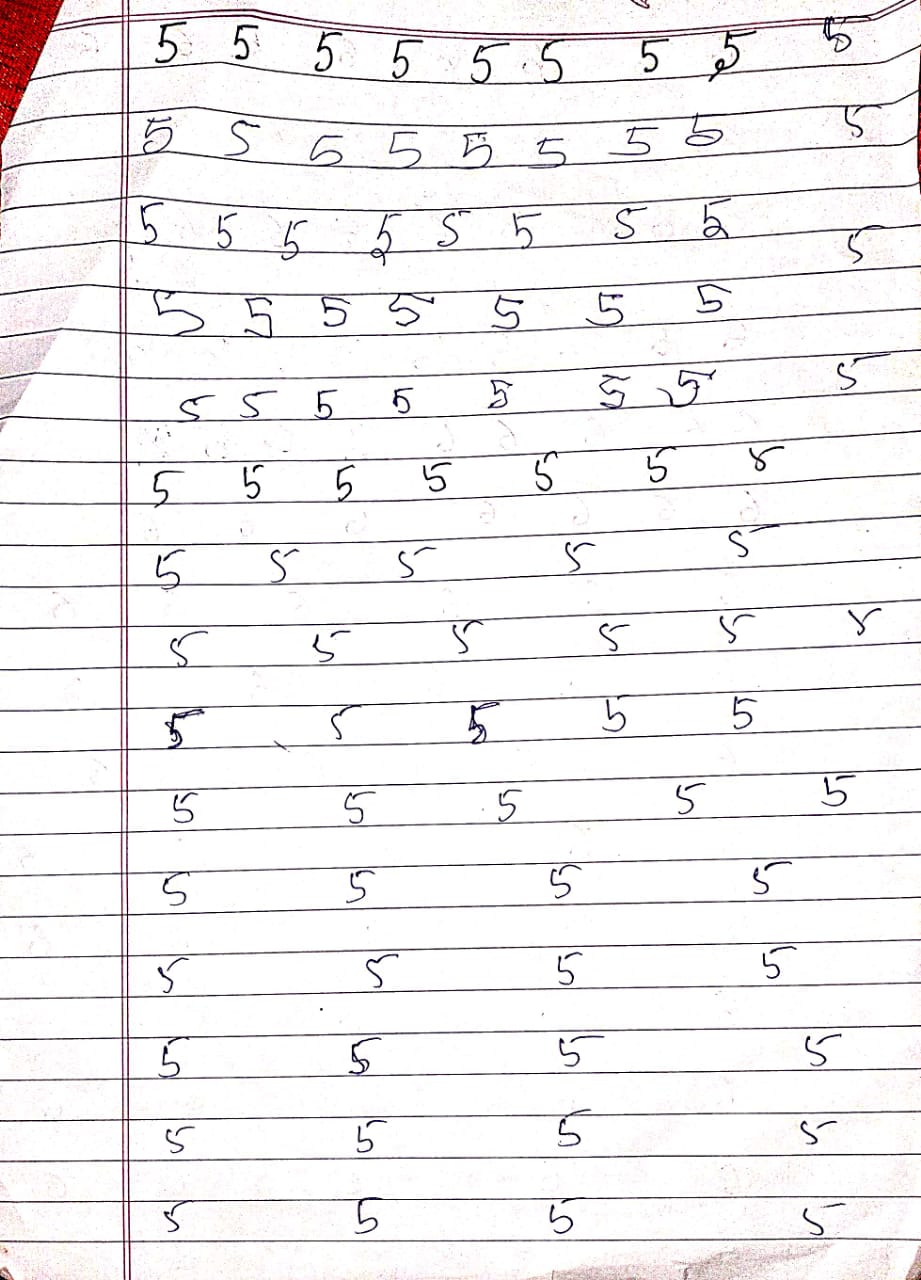 5 5 5 5 5 5 5 5 5
5 5 5 5 5 5 5 5 5
5 5 5 5 5 5 5 5 5
5 5 5 5 5 5 5
5 5 5 5 5 5 5 5
5 5 5 5 5 5 5
5 5 5 5 5
5 5 5 5 5 5
5 5 5 5 5
5 5 5 5 5
5 5 5 5
5 5 5 5
5 5 5 5
5 5 5 5
5 5 5 5